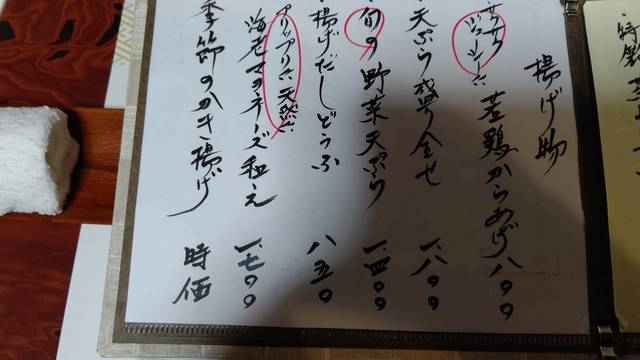 揚げ物
サクサクジューシー
若鶏からあげ 八〇〇
天ぷら盛り合せ 一、八〇〇
旬の野菜天ぷら 一、四〇〇
揚げだしどうふ 八五〇
プリップリの天然
海老マヨネーズ和え 一、七〇〇
季節のかき揚げ 時価